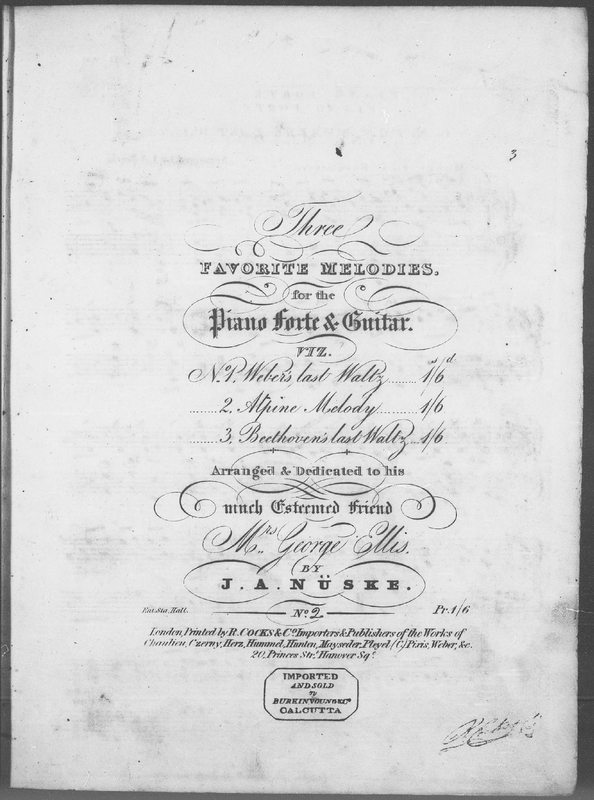 3
Three
FAVORITE MELODIES,
for the
Piano Forte & Guitar.
VIZ.
s d
No. 1. Weber's last Waltz ........ 1/6
....... 2. Alpine Melody ......... 1/6
....... 3. Beethoven's last Waltz .. 1/6
Arranged & Dedicated to his
much Esteemed Friend
Mrs. George Ellis.
BY
J. A. NÜSKE.
Ent. Sta. Hall. No. 2 Pr. 1/6
London, Printed by R. COCKS & Co. Importers & Publishers of the Works of
Chaulieu, Czerny, Herz, Hummel, Hünten, Mayseder, Pleyel, (C) Pixis, Weber, &c.
20, Princes Str. Hanover Sqr.
IMPORTED
AND SOLD
by
BURKINYOUNG & Co.
CALCUTTA